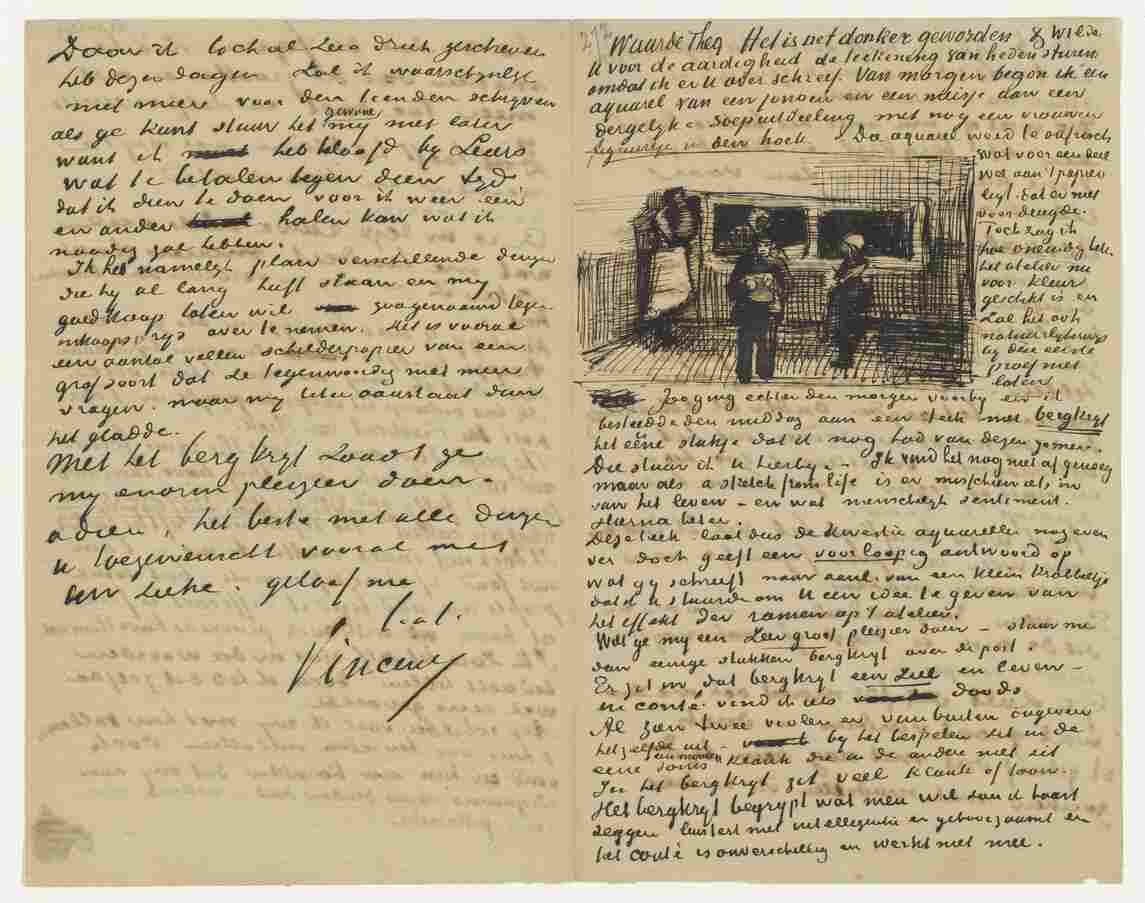 Daar ik toch al zeer druk geschreven
heb dezer dagen zal ik waarschynlyk
niet meer voor den tienden schryven
als ge kunt stuur het gewone my niet later
want ik heb beloofd by Leurs
wat te betalen tegen dien tyd
dat ik dien te doen voor ik weer een
en ander halen kan wat ik
noodig zal hebben.
Ik heb namelyk plan verschillende dingen
die hy al lang heeft staan en my
goedkoop laten wil zoogenaamd tegen
inkoopsprys over te nemen. Het is vooral
een aantal vellen schilderpapier van een
grof soort dat ze tegenwoordig niet meer
vragen. maar my beter aanstaat dan
het gladde.
Met het bergkryt zoudt ge
my enorm plezier doen.
adieu, het beste met alle dingen
u toegewenscht vooral met
uw zieke. geloof me
t. à t.
Vincent
Waarde Theo Het is net donker geworden & wilde
U voor de aardigheid de teekening van heden sturen
omdat ik er U over schreef. Van morgen begon ik een
aquarel van een jongen en een meisje aan een
dergelyke soepuitdeeling met nog een vrouwen
figuurtje in den hoek. Die aquarel werd te onfrisch
wat voor een deel
wel aan 't papier
ligt. dat er niet
voor deugde.
Toch zag ik
hoe oneindig beter
het atelier nu
voor kleur
geschikt is en
zal het ook
natuurlykerwys
by deze eerste
proef niet
laten
Zoo ging echter den morgen voorby en ik
besteedde den middag aan een teek met bergkryt
het eene stukje dat ik nog had van dezen zomer.
Die stuur ik u hierby. – Ik vind het nog niet af genoeg
maar als a sketch from life is er misschien iets in
van het leven – en wat menschelyk sentiment.
Hierna beter.
Deze teek. laat dus de kwestie aquarellen nog even
ver doch geeft een voorloopig antwoord op
wat gy schreeft naar aanl. van een klein krabbeltje
dat ik u stuurde om U een idee te geven van
het effekt der ramen op 't atelier.
Wilt ge my een zeer groot plezier doen – stuur me
dan eenige stukken bergkryt over de post.
Er zit in dat bergkryt een ziel en leven –
in conté vind ik iets doods
Al zyn twee violen er van buiten ongeveer
hetzelfde uit – by het bespelen zit in de
eene soms een mooien klank die in de andere niet zit
In het bergkryt zit veel klank of toon.
Het bergkryt begrypt wat men wil zou ik haast
zeggen luistert met intelligentie en gehoorzaamt en
het conté is onverschillig en werkt niet mee.